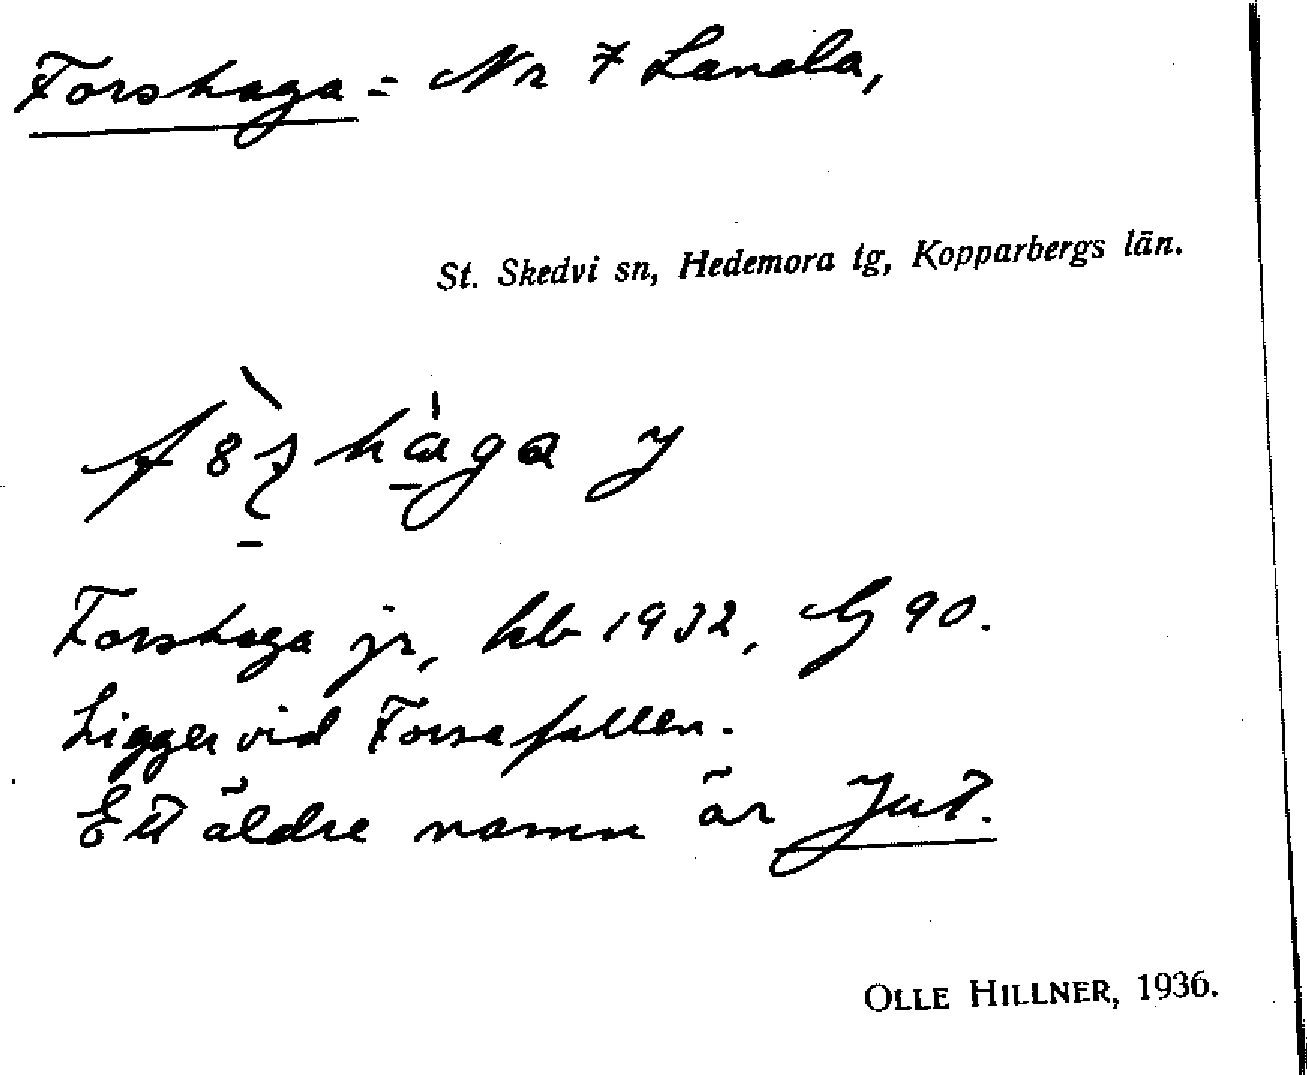 Forshaga = Nr 7 Landa,
St. Skedvi sn, Hedemora tg, Kopparbergs län.
Forshaga jr, kb 1932, G 90.
Ligger vid Forsafallen.
Ett äldre namn är Jut.
OLLE HILLNER, 1936.